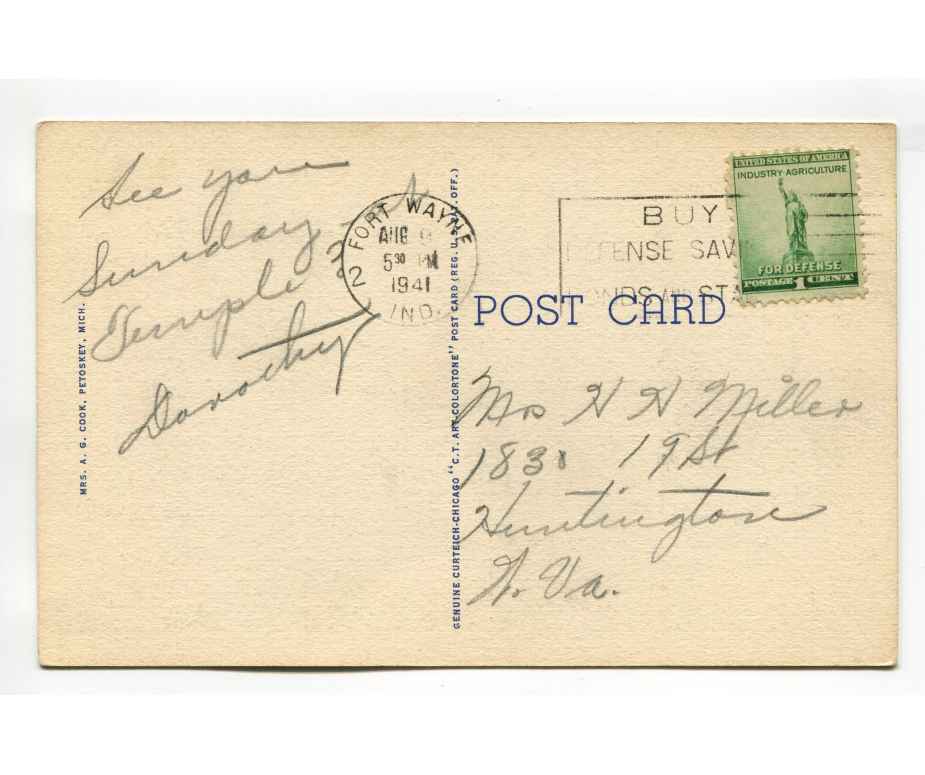 See you
Sunday
Temple
Dorothy
MRS. A. G. COOK, PETOSKEY, MICH.
GENUINE CURTEICH-CHICAGO "C.T. ART-COLORTONE" POST CARD (REG. U. S. PAT. OFF.)
FORT WAYNE
2
AUG 9
5 30 PM
1941
IND.
BUY
DEFENSE SAV
BONDS AND STA
UNITED STATES OF AMERICA
INDUSTRY-AGRICULTURE
FOR DEFENSE
POSTAGE 1 CENT
POST CARD
Mrs H H Miller
1830 19 St
Huntington
W. Va.